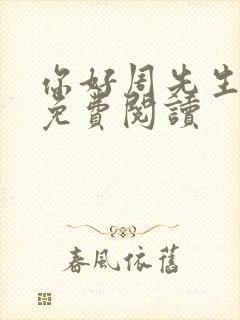 你好周先生
免費閱讀
春風依舊